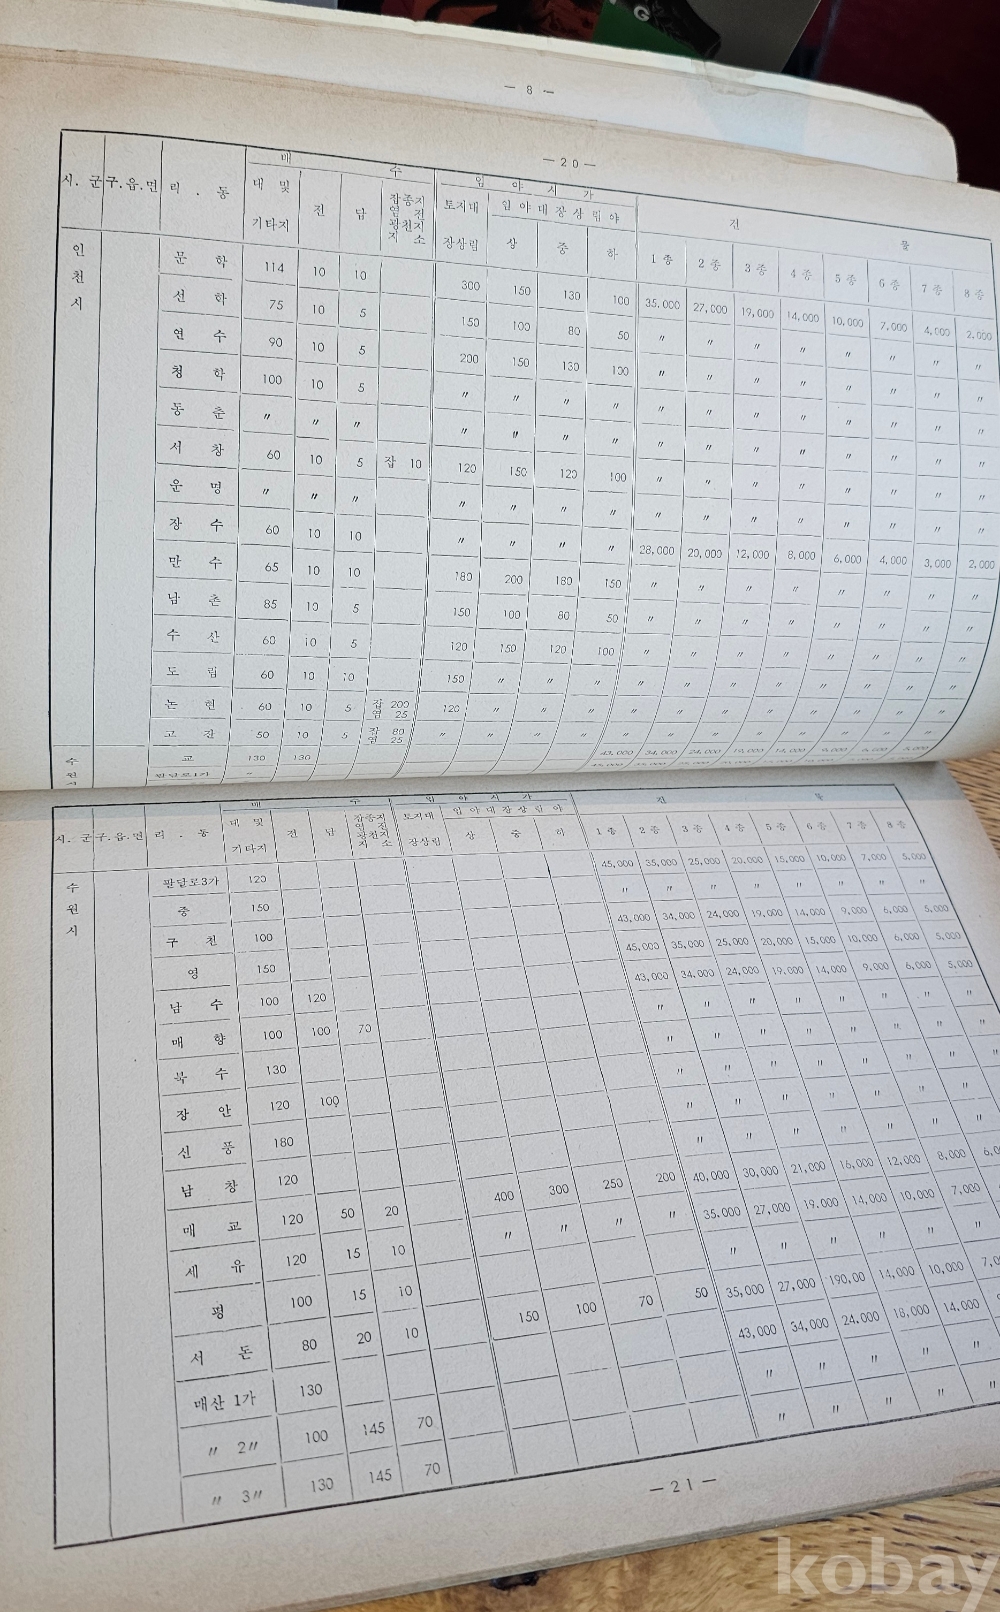 G
— 8 —
— 20 —
매 수 임 야 시 가 건 물
시. 군 구.읍.면 리 . 동 대 및 기타지 전 답 잡종지 염 전 광천지 지 소 토지대 장상림 임 야 대 장 상 림 야 상 중 하 1 종 2 종 3 종 4 종 5 종 6 종 7 종 8 종
인 천 시
문 학 114 10 10 300 150 130 100 35,000 27,000 19,000 14,000 10,000 7,000 4,000 2,000
선 학 75 10 5 150 100 80 50 〃 〃 〃 〃 〃 〃 〃 〃
연 수 90 10 5 200 150 130 100 〃 〃 〃 〃 〃 〃 〃 〃
청 학 100 10 5 〃 〃 〃 〃 〃 〃 〃 〃 〃 〃 〃 〃
동 춘 〃 〃 〃 〃 〃 〃 〃 〃 〃 〃 〃 〃 〃 〃 〃
서 창 60 10 5 잡 10 120 150 120 100 〃 〃 〃 〃 〃 〃 〃 〃
운 〃 〃 〃 〃 〃 〃 〃 〃 〃 〃 〃 〃 〃 〃 〃
장 수 60 10 10 〃 〃 〃 〃 28,000 20,000 12,000 8,000 6,000 4,000 3,000 2,000
만 수 65 10 10 180 200 180 150 〃 〃 〃 〃 〃 〃 〃 〃
남 촌 85 10 5 150 100 80 50 〃 〃 〃 〃 〃 〃 〃 〃
수 산 60 10 5 120 150 120 100 〃 〃 〃 〃 〃 〃 〃 〃
도 림 60 10 10 150 〃 〃 〃 〃 〃 〃 〃 〃 〃 〃 〃
논 현 60 10 5 잡 200 염 25 120 〃 〃 〃 〃 〃 〃 〃 〃 〃 〃 〃
고 잔 50 10 5 잡 80 염 25 〃 〃 〃 〃 〃 〃 〃 〃 〃 〃 〃 〃
수 원 교 130 130 43,000 34,000 24,000 19,000 14,000
팔달로1가
매 수 임 야 시 가 건 물
시. 군 구.읍.면 리 . 동 대 및 기타지 전 답 잡종지 염 전 광천지 지 소 토지대 장상림 임 야 대 장 상 림 야 상 중 하 1 종 2 종 3 종 4 종 5 종 6 종 7 종 8 종
수 원 시
팔달로3가 120 45,000 35,000 25,000 20,000 15,000 10,000 7,000 5,000
중 150 〃 〃 〃 〃 〃 〃 〃 〃
구 천 100 43,000 34,000 24,000 19,000 14,000 9,000 6,000 5,000
영 150 45,000 35,000 25,000 20,000 15,000 10,000 6,000 5,000
남 수 100 120 43,000 34,000 24,000 19,000 14,000 9,000 6,000 5,000
매 향 100 100 70 〃 〃 〃 〃 〃 〃 〃 〃
북 수 130 〃 〃 〃 〃 〃 〃 〃 〃
장 안 120 100 〃 〃 〃 〃 〃 〃 〃 〃
신 풍 180 〃 〃 〃 〃 〃 〃 〃
남 창 120 〃 〃 〃 〃 〃 〃 〃
매 교 120 50 20 400 300 250 200 40,000 30,000 21,000 16,000 12,000 8,000
세 유 120 15 10 〃 〃 〃 〃 35,000 27,000 19,000 14,000 10,000 7,000
평 100 15 10 〃 〃 〃 〃 〃 〃
서 돈 80 20 10 150 100 70 50 35,000 27,000 190,00 14,000 10,000
매산 1가 130 43,000 34,000 24,000 18,000 14,000
〃 2〃 100 145 70 〃 〃 〃 〃 〃
〃 3〃 130 145 70 〃 〃 〃 〃 〃
— 21 —
kobay